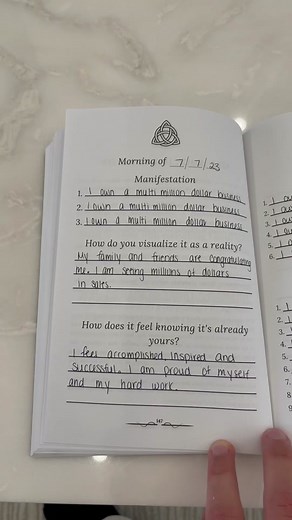 Morning of 7/7/23
Manifestation
1. I own a multi million dollar business
2. I own a multi million dollar business
3. I own a multi million dollar business
How do you visualize it as a reality?
My family and friends are congratulating
me. I am seeing millions of dollars
in sales.
How does it feel knowing it's already
yours?
I feel accomplished, inspired and
successful. I am proud of myself
and my hard work.
147
1. I
2. I
3. I
4. I
5. I
6. I
1. I
2. I
3.
4.
5.
6.
7.
8.
9